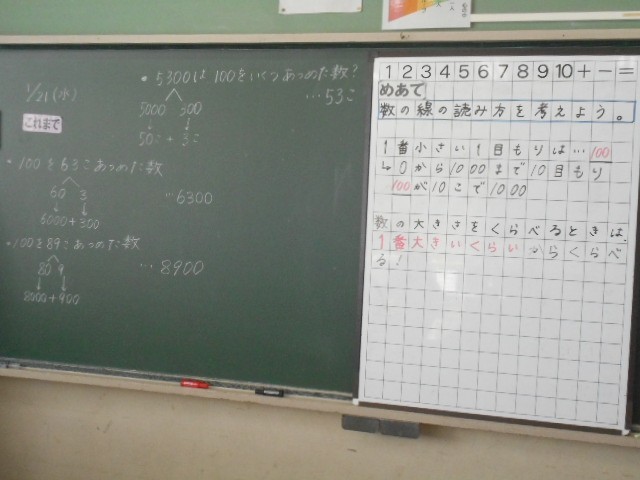 1/21(水)
これまで
・5300は100をいくつあつめた数?
5000 300
…53こ
50こ+3こ
・100を63こあつめた数
60 3
…6300
6000+300
・100を89こあつめた数
80 9
…8900
8000+900
1 2 3 4 5 6 7 8 9 10 + − =
めあて
数の線の読み方を考えよう。
1番小さい1目もりは…100
↳0から1000まで10目もり
100が10こで1000
数の大きさをくらべるときは、
1番大きいくらいからくらべ
る!